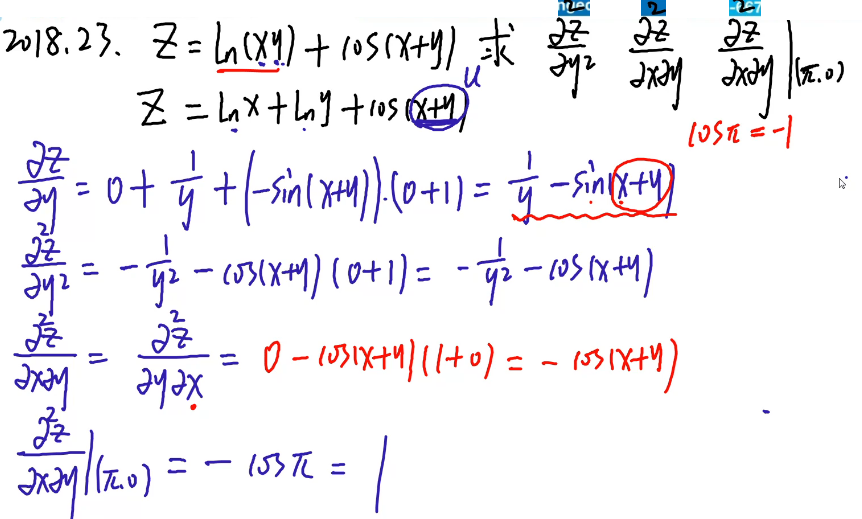 2018.23. Z = ln(xy) + cos(x+y) 求 ∂²z/∂y² ∂²z/∂x∂y ∂²z/∂x∂y|(π.0)
Z = lnx + lny + cos(x+y) u
cosπ = -1
∂z/∂y = 0 + 1/y + (-sin(x+y))·(0+1) = 1/y - sin(x+y)
∂²z/∂y² = - 1/y² - cos(x+y)(0+1) = - 1/y² - cos(x+y)
∂²z/∂x∂y = ∂²z/∂y∂x = 0 - cos(x+y)(1+0) = - cos(x+y)
∂²z/∂x∂y|(π.0) = - cosπ = 1